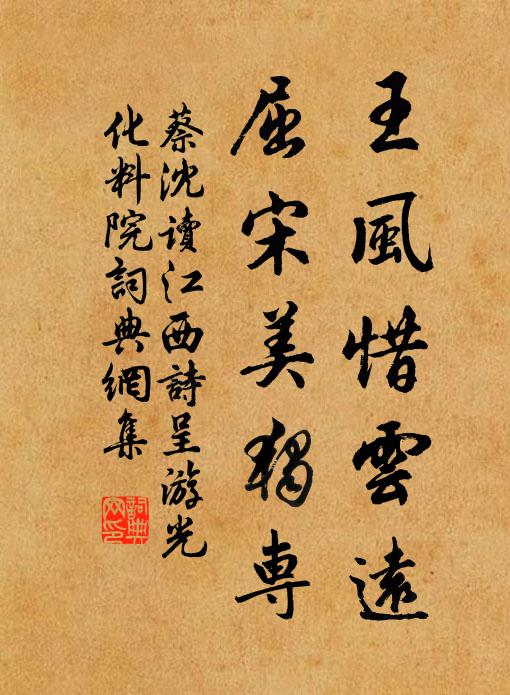 王風惜雲遠
屈宋美獨専
蔡沈讀江西詩呈游光
化料院詞典網集
詞典網印